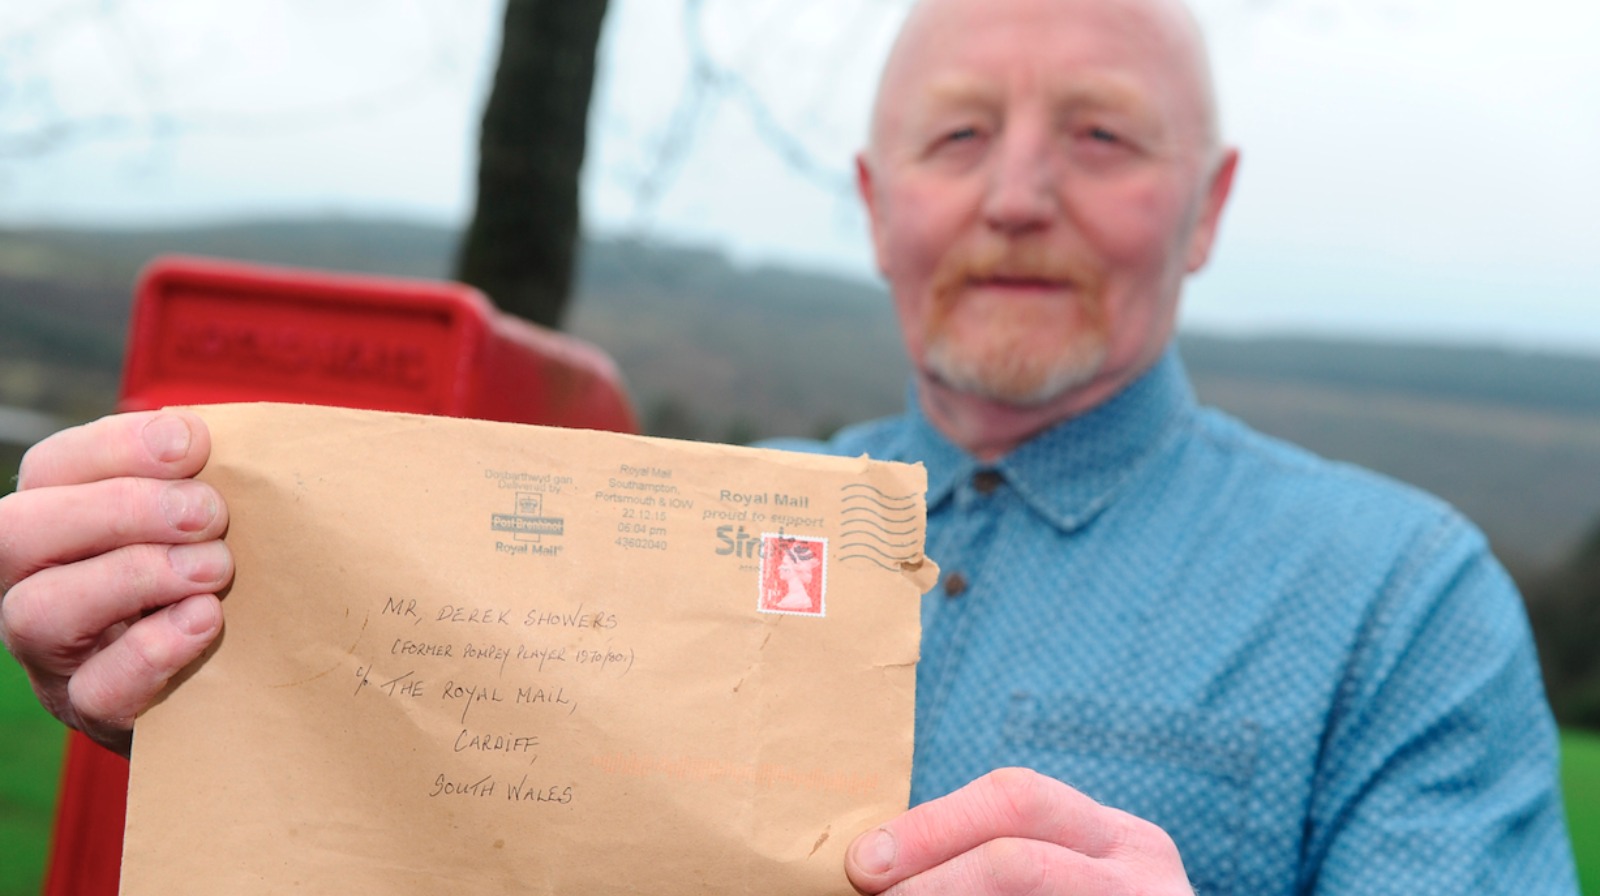 Dosbarthwyd gan
Delivered by
Post Brenhinol
Royal Mail
Royal Mail
Southampton,
Portsmouth & IOW
22.12.15
06:04 pm
43602040
Royal Mail
proud to support
1st
MR, DEREK SHOWERS
(FORMER POMPEY PLAYER 1970/80s)
c/o THE ROYAL MAIL,
CARDIFF,
SOUTH WALES